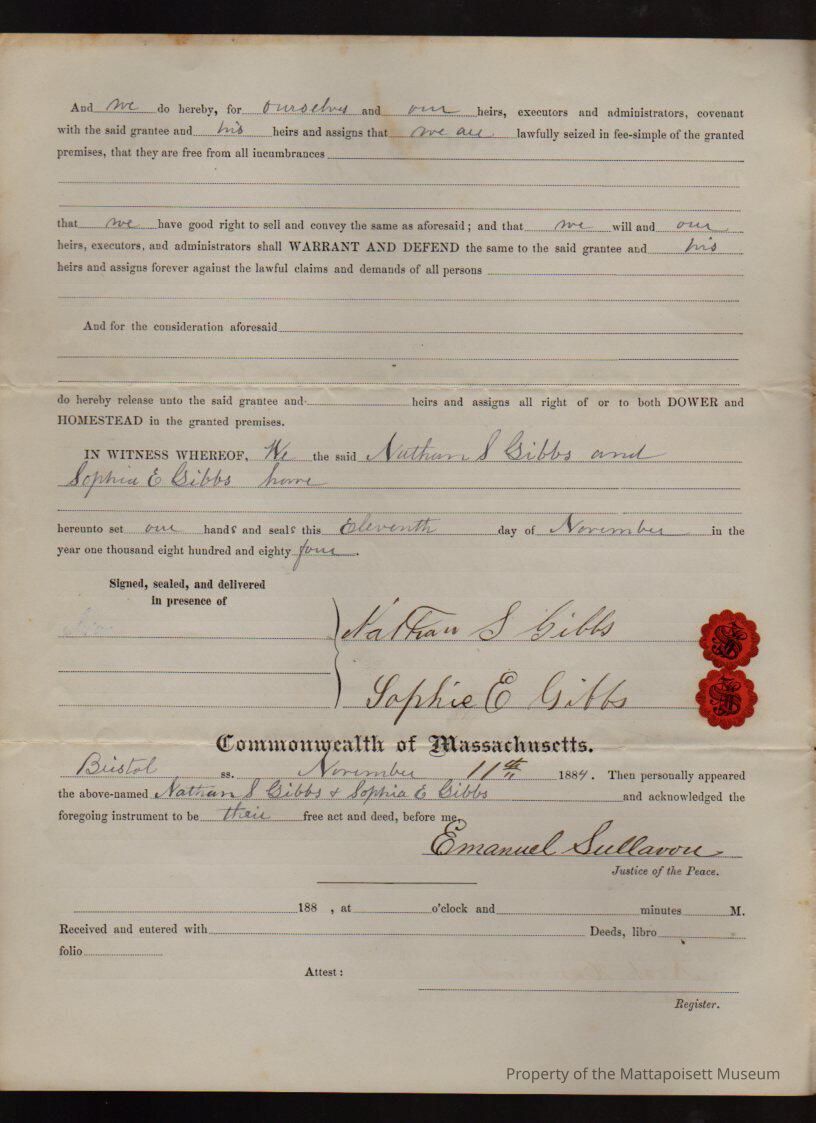 And we do hereby, for ourselves and our heirs, executors and administrators, covenant
with the said grantee and his heirs and assigns that we are lawfully seized in fee-simple of the granted
premises, that they are free from all incumbrances
that we have good right to sell and convey the same as aforesaid; and that we will and our
heirs, executors, and administrators shall WARRANT AND DEFEND the same to the said grantee and his
heirs and assigns forever against the lawful claims and demands of all persons
And for the consideration aforesaid
do hereby release unto the said grantee and heirs and assigns all right of or to both DOWER and
HOMESTEAD in the granted premises.
IN WITNESS WHEREOF, We the said Nathan S Gibbs and
Sophia E Gibbs have
hereunto set our hands and seals this Eleventh day of November in the
year one thousand eight hundred and eighty four.
Signed, sealed, and delivered
in presence of
Nathan S Gibbs
Sophie E Gibbs
Commonwealth of Massachusetts.
Bristol ss. November 11th 1884. Then personally appeared
the above-named Nathan S Gibbs & Sophia E Gibbs and acknowledged the
foregoing instrument to be their free act and deed, before me,
Emanuel Sullavou
Justice of the Peace.
188 , at o'clock and minutes M.
Received and entered with Deeds, libro
folio
Attest:
Register.
Property of the Mattapoisett Museum